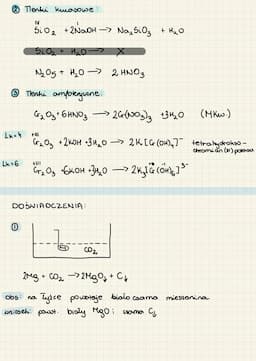 ② Tlenki kwasowe:
IV
SiO₂ + 2NaOH → Na₂SiO₃ + H₂O
SiO₂ + H₂O → X
N₂O₅ + H₂O → 2 HNO₃
③ Tlenki amfoteryczne:
Cr₂O₃ + 6HNO₃ → 2Cr(NO₃)₃ + 3H₂O (MKw.)
Lk=4 +III
Cr₂O₃ + 2KOH + 3H₂O → 2K[Cr(OH)₄]⁻ tetrahydrokso-
chromian (III) potasu
Lk=6 +III
Cr₂O₃ + 6KOH + 3H₂O → 2K₃[Cr(OH)₆]³⁻
DOŚWIADCZENIA:
①
CO₂
2Mg + CO₂ → 2MgO↓ + C↓
obs: na łyżce powstaje biało czarna mieszanina
wniosek: powst. biały MgO i czarna C↓